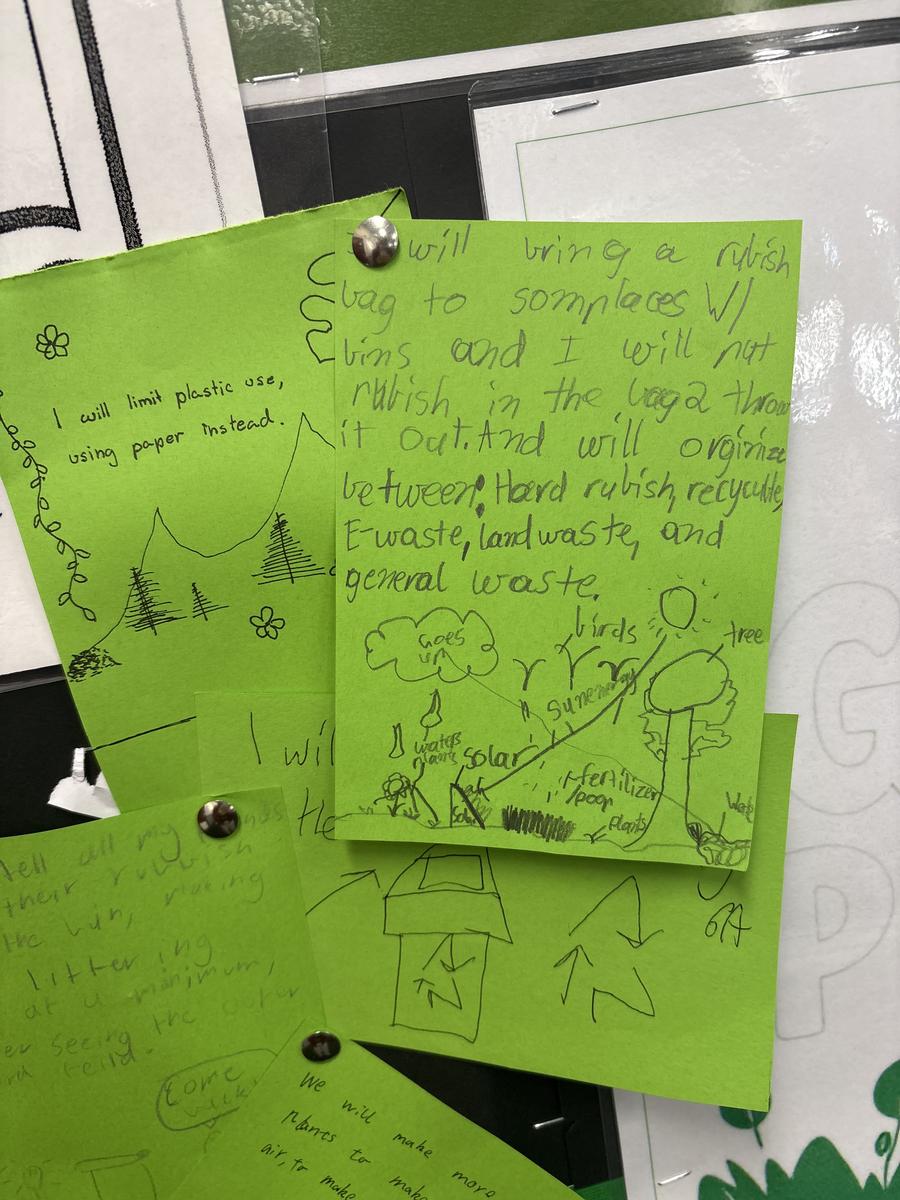 I will limit plastic use,
using paper instead.
will bring a rubish
bag to somplaces W/
bins and I will put
rubish in the bag2 throw
it out. And will orginize
between: Hard rubish, recycuble,
E-waste, landwaste, and
general waste.
Goes
up
birds
tree
Sunenergy
waters
plants
Solar
fertilizer
/poop
plants
I wil
He
6A
tell all my
their rubbish
the bin, making
littering
at a minimum,
er seeing the outer
feild.
Come
We will make more
Plants to make
air, to make
G
P